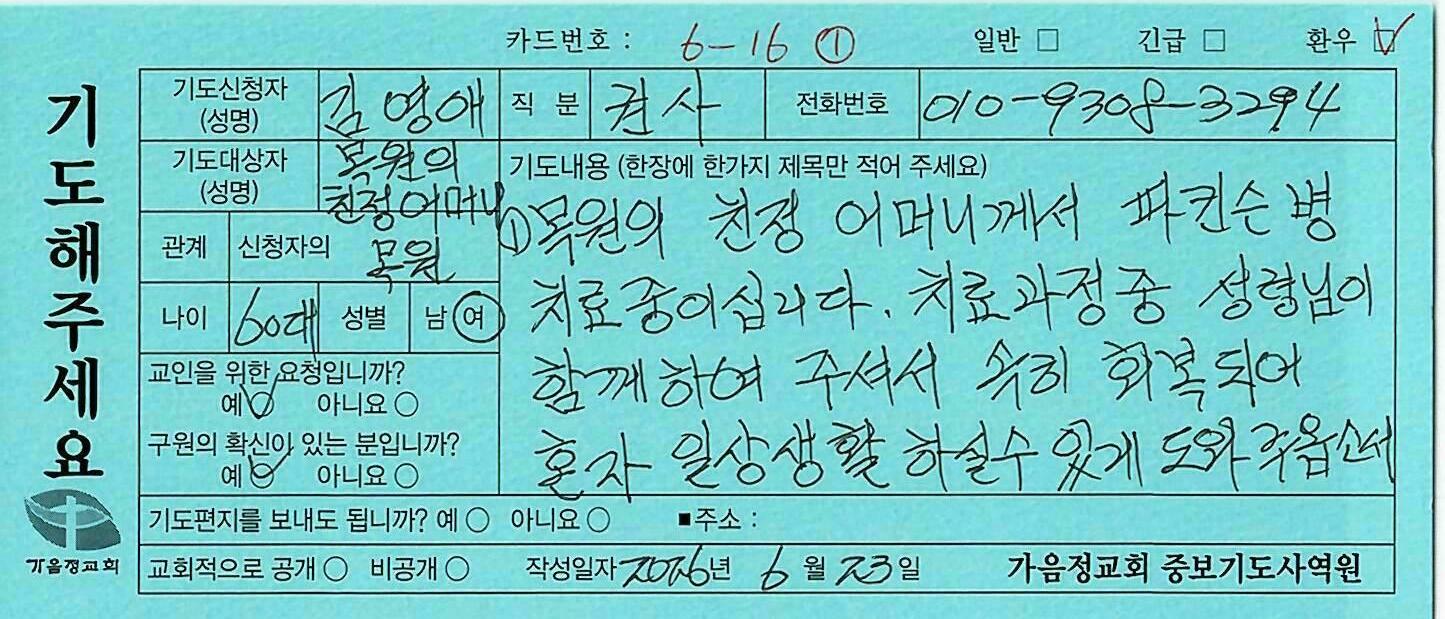 카드번호 : 6-16 ① 일반 □ 긴급 □ 환우 ☑
기도해주세요
기도신청자 (성명) 김영애 직 분 권사 전화번호 010-9308-3294
기도대상자 (성명) 목원의 친정어머니
기도내용 (한장에 한가지 제목만 적어 주세요)
관계 신청자의 목원
나이 60대 성별 남 여
①목원의 친정 어머니께서 파킨슨 병
치료중이십니다. 치료과정중 성령님이
함께하여 주셔서 속히 회복되어
혼자 일상생활 하실수 있게 도와 주옵소서
교인을 위한 요청입니까?
예 ○ 아니요 ○
구원의 확신이 있는 분입니까?
예 ○ 아니요 ○
기도편지를 보내도 됩니까? 예 ○ 아니요 ○ ■주소 :
교회적으로 공개 ○ 비공개 ○ 작성일자 2026년 6월 23일 가음정교회 중보기도사역원
가음정교회